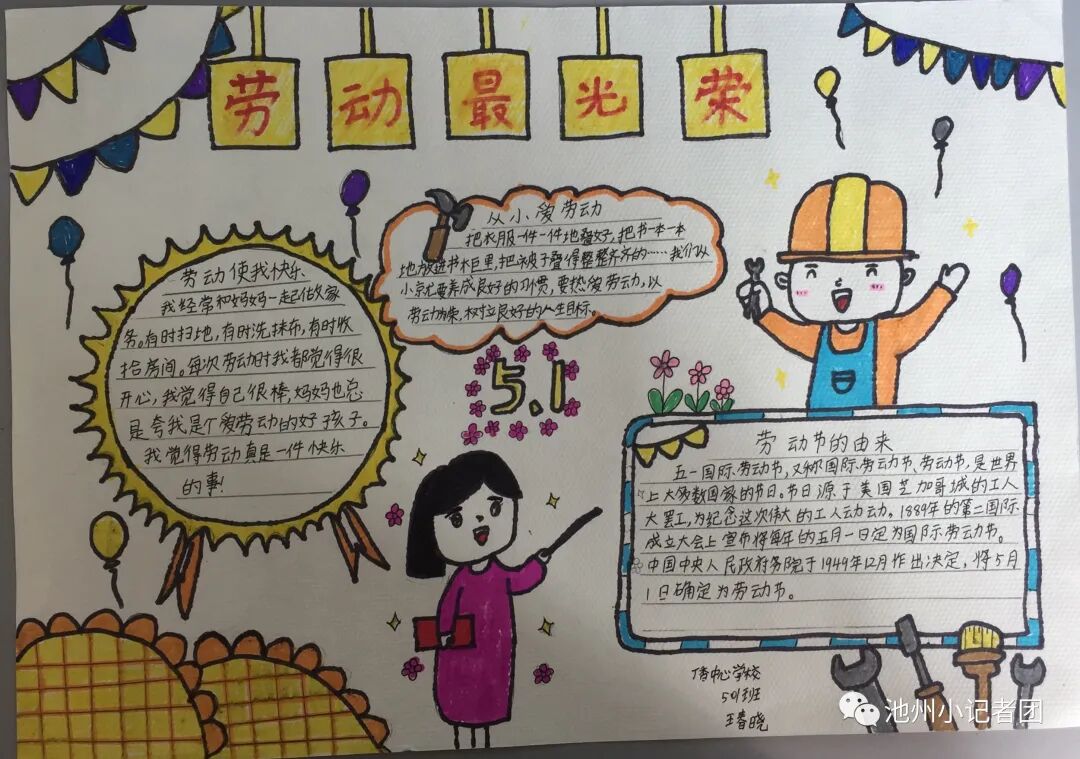 劳动最光荣
劳动使我快乐
我经常和妈妈一起做家
务。有时扫地，有时洗抹布，有时收
拾房间。每次劳动时我都觉得很
开心，我觉得自己很棒，妈妈也总
是夸我是个爱劳动的好孩子。
我觉得劳动真是一件快乐
的事！
从小爱劳动
把衣服一件一件地叠好，把书一本一本
地放进书包里，把被子叠得整整齐齐的……我们从
小就要养成良好的习惯，要热爱劳动，以
劳动为荣，树立良好的人生目标。
5.1
劳动节的由来
五一国际劳动节，又称国际劳动节、劳动节，是世界
上大多数国家的节日。节日源于美国芝加哥城的工人
大罢工，为纪念这次伟大的工人动动。1889年的第二国际
成立大会上宣布将每年的五月一日定为国际劳动节。
中国中央人民政府务院于1949年12月作出决定，将5月
1日确定为劳动节。
中心学校
501班
王春晓
池州小记者团